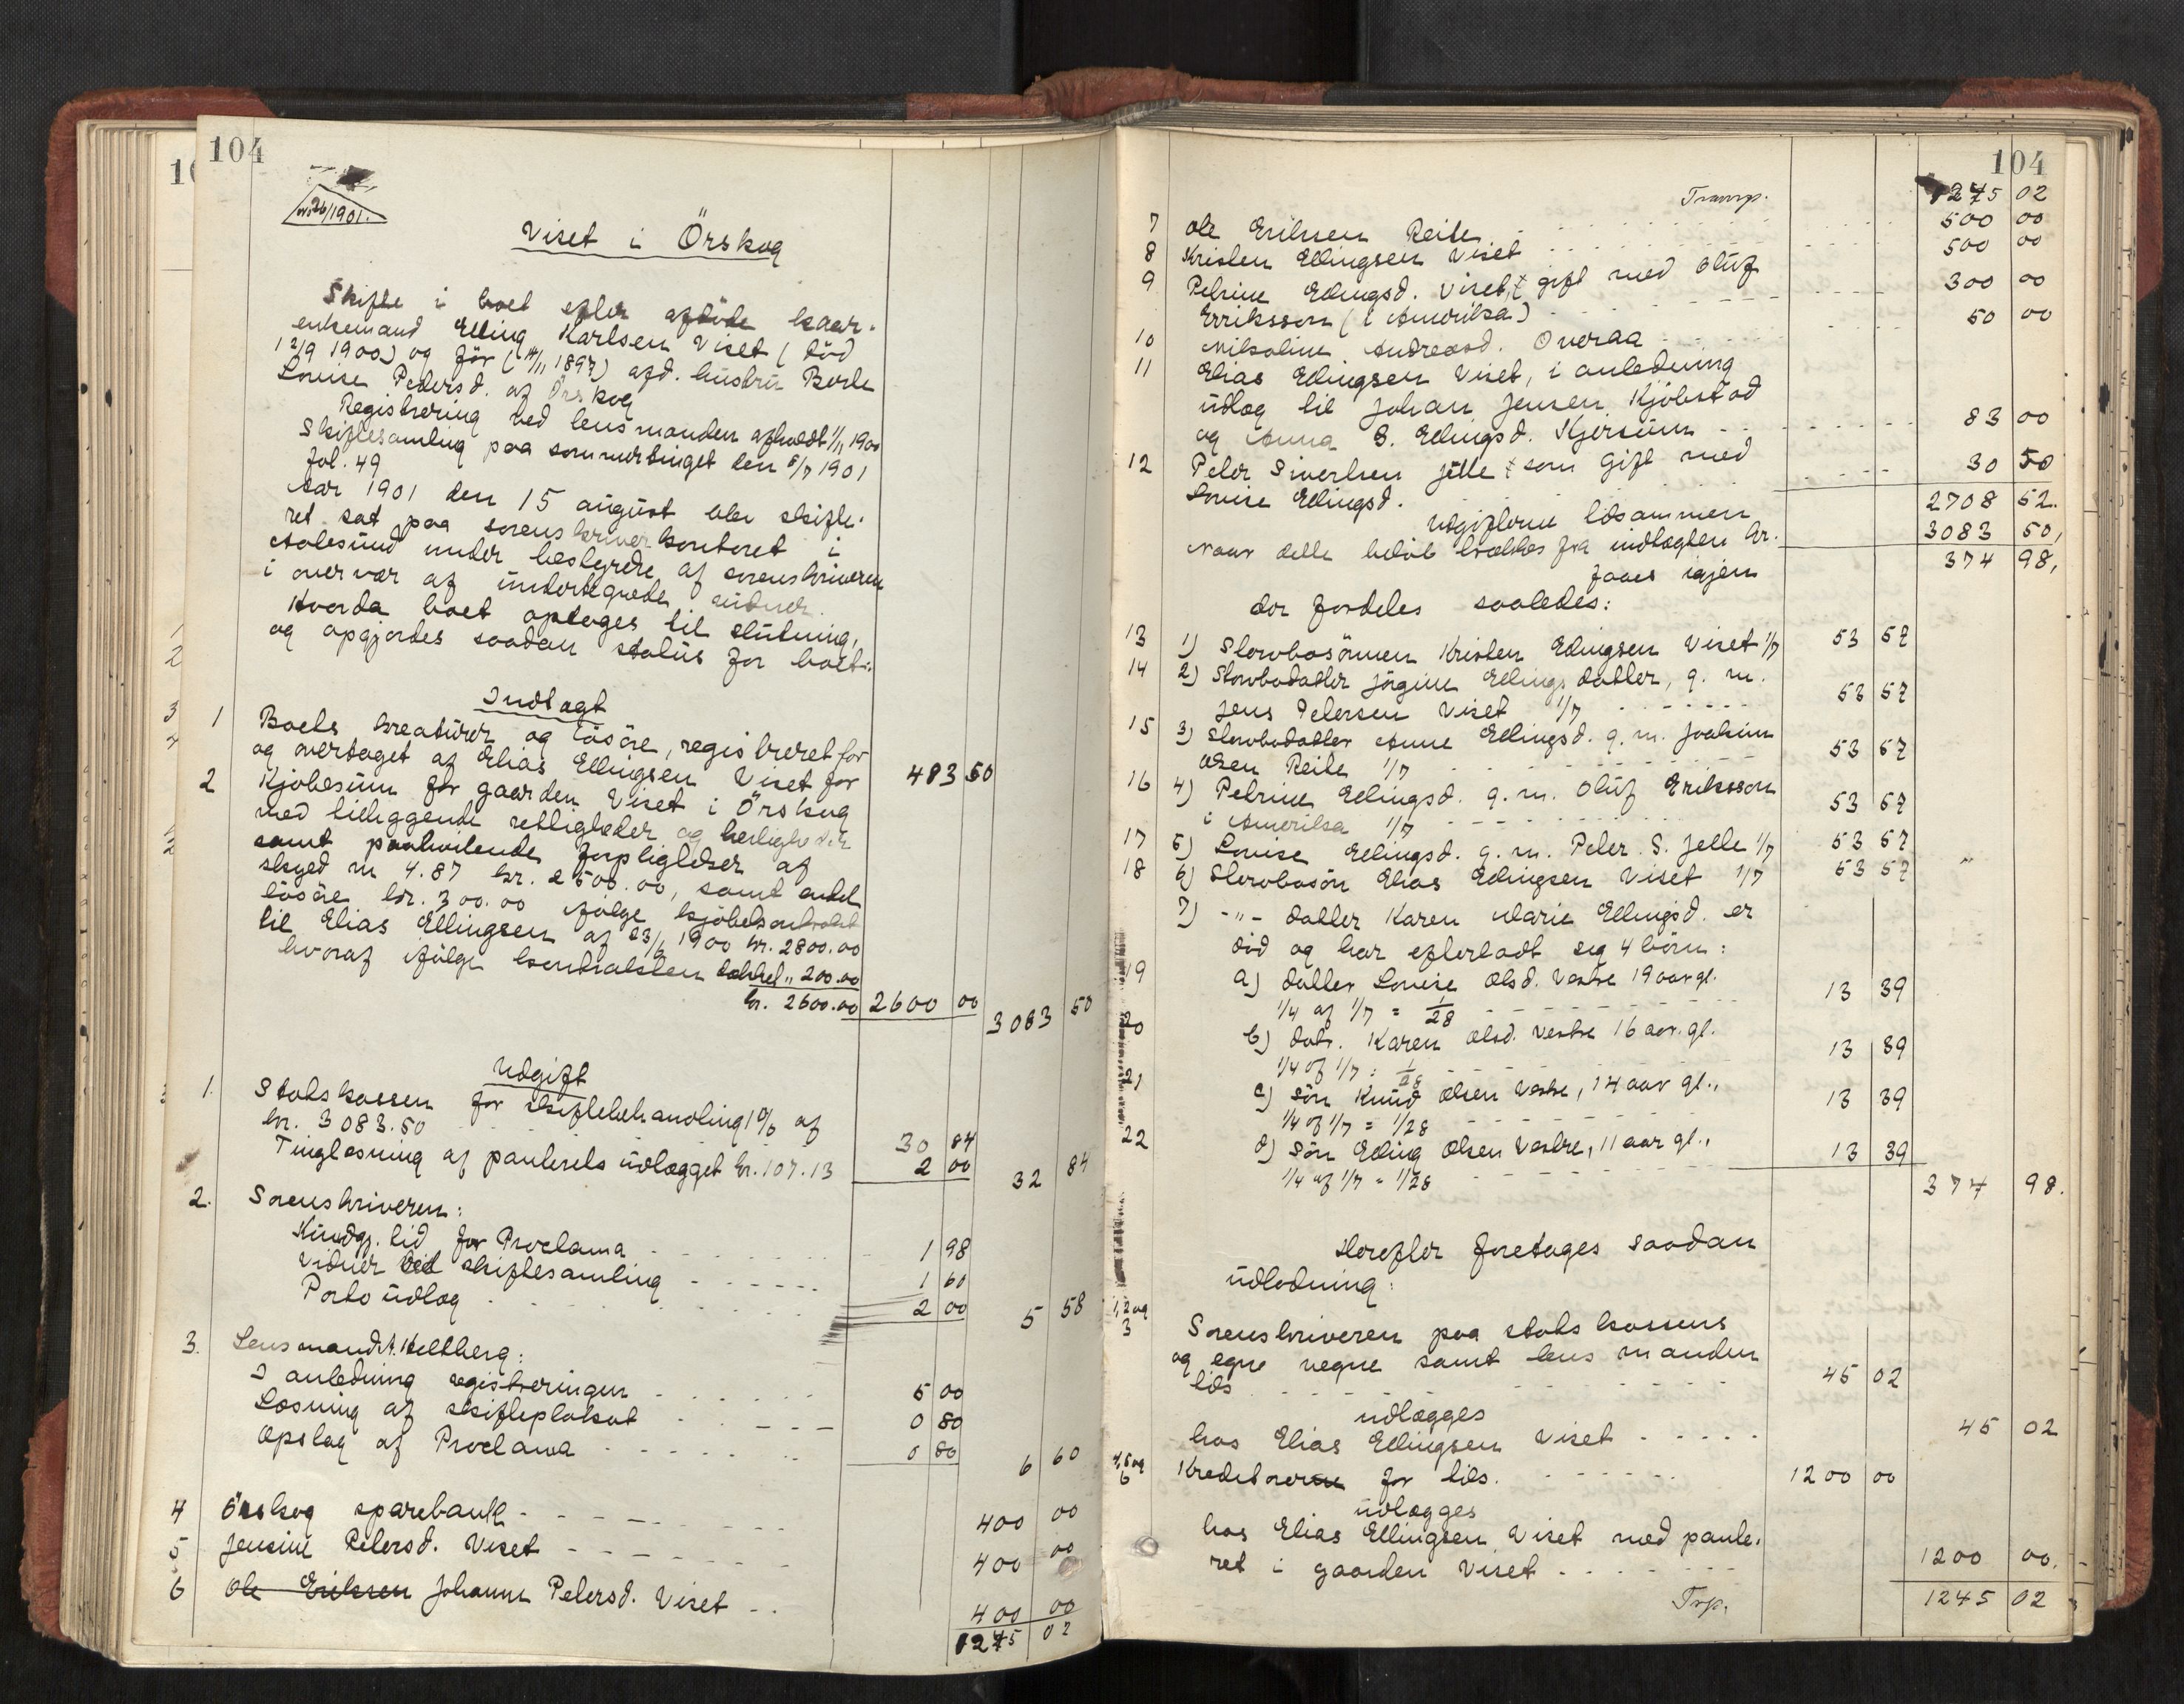 104
No 26/1901.
Viset i Örskog
Skifte i boet efter afdöde kaar-
enkemand Elling Karlsen Viset (död
12/9 1900) og för (14/11 1897) afd. hustru Berte
Louise Pedersd. af Örskog
Registrering ved lensmanden afholdt 1/11 1900
Skiftesamling paa sommertinget den 5/7 1901
fol. 49
Aar 1901 den 15 august blev skifte-
ret sat paa sorenskriverkontoret i
Aalesund under bestyrelse af sorenskriveren
i overvær af undertegnede vidner.
Hvorda boet optoges til slutning,
og opgjordes saadan status for boet:
Indtægt
1 Boets kreaturer og lösöre, registreret for
og overtaget af Elias Ellingsen Viset for 483 50
2 Kjöbesum for gaarden Viset i Örskog
med tilliggende rettigheder og herligheder
samt paahvilende forpligtelser af
skyld m 4.87 kr. 2500.00, samt endel
lösöre kr. 300.00 ifölge kjöbekontrakt
til Elias Ellingsen af 23/6 1900 kr. 2800.00
hvoraf ifölge kontrakten " 200.00
kr. 2600.00 2600 00 3083 50
Udgift
1. Statskassen for skiftebehandling 1% af
kr. 3083.50 30 84
Tinglæsning af panterets udlægget kr. 107.13 2 00 32 84
2. Sorenskriveren:
Kundgj. tid for Proclama 1 98
Vidner ved skiftesamling 1 60
Porto udlæg 2 00 5 58
3. Lensmand A. Heltberg:
I anledning registreringen 5 00
Læsning af skifteplakat 0 80
Opslag af Proclama 0 80 6 60
4 Örskog sparebank 400 00
5 Jensine Petersd. Viset 400 00
6 Ole Eriksen Johanne Petersd. Viset 400 00
1245 02
104
Transp. 1245 02
7 Ole Eriksen Reite 500 00
8 Kristen Ellingsen Viset 500 00
9 Petrine Ellingsd. Viset, gift med Oluf
Erriksson (i Amerika) 300 00
10 Nikoline Andreasd. Overaa 50 00
11 Elias Ellingsen Viset, i anledning
udlæg til Johan Jensen Kjöbstad
og Anna S. Ellingsd. Kjersum 83 00
12 Peter Sivertsen Jelle som gift med
Louise Ellingsd. 30 50
Udgifterne tilsammen 2708 52.
Naar dette belöb trækkes fra indtægten kr. 3083 50,
faaes igjen 374 98,
der fordeles saaledes:
13 1) Stervbosönnen Kristen Ellingsen Viset 1/7 53 57
14 2) Stervbodatter Jörgine Ellingsdatter, g. m.
Jens Petersen Viset 1/7 53 57
15 3) Stervbodatter Anne Ellingsd. g. m. Joakim
Olsen Reite 1/7 53 57
16 4) Petrine Ellingsd. g. m. Oluf Eriksson
i Amerika 1/7 53 57
17 5) Louise Ellingsd. g. m. Peter S. Jelle 1/7 53 57
18 6) Stervbosön Elias Ellingsen Viset 1/7 53 57
7) -"- datter Karen Marie Ellingsd. er
död og har efterladt sig 4 börn:
19 a) datter Louise Olsd. Vestre 19 aar gl.
1/4 af 1/7 = 1/28 13 39
20 b) datr. Karen Olsd. Vestre 16 aar gl.
1/4 af 1/7 = 1/28 13 39
21 c) sön Knud Olsen Vestre, 14 aar gl.,
1/4 af 1/7 = 1/28 13 39
22 d) Sön Elling Olsen Vestre, 11 aar gl.,
1/4 af 1/7 = 1/28 13 39
374 98.
Herefter foretages saadan
udlodning:
1, 2 og 3 Sorenskriveren paa statskassens
og egne vegne samt lensmanden
tils 45 02
udlægges
hos Elias Ellingsen Viset 45 02
4, 5 og 6 Kreditorerne for tils. 1200 00
udlægges
hos Elias Ellingsen Viset med pante-
ret i gaarden Viset 1200 00.
Trp. 1245 02